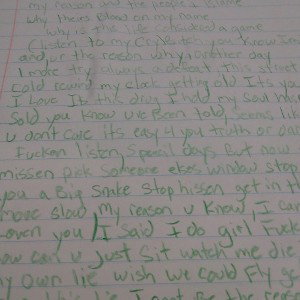 my reason and the people I blame
why theirs Blood on my name
why is this life considered a game
Listen to my Cry Bitch, you knew Im
and ur the reason why, another day
1 more try always a defeat. This street
cold rewind my clock getting old Its yo
I Love It this drug I hold my soul
Sold you know uve Been told, seems like
u dont care its easy 4 you truth or da
Fucken listen, Special days But now
missen pick someone elses window stop
you a Big Snake Stop hissen get in t
move slow my reason u know, I can
Loven you, I said I do girl Fuck
how can u just sit watch me die
my own lie wish we could fly